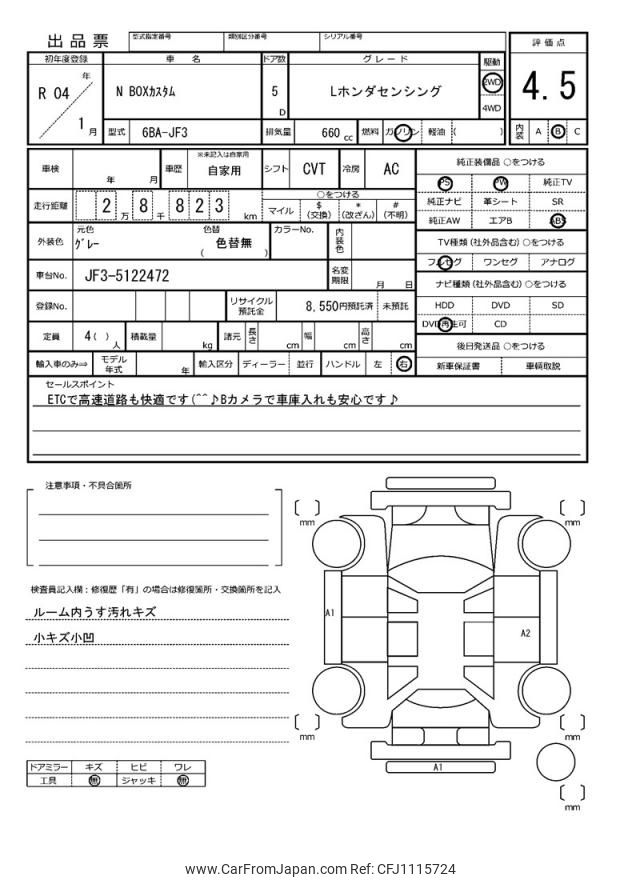 出品票
型式指定番号
類別区分番号
シリアル番号
評価点
初年度登録
車 名
ドア数
グレード
駆動
R 04
年
1
月
N BOXカスタム
5
D
Lホンダセンシング
2WD
4WD
4.5
型式
6BA-JF3
排気量
660 cc
燃料
ガソリン
軽油
( )
内装
A
B
C
車検
年 月
車歴
※未記入は自家用
自家用
シフト
CVT
冷房
AC
純正装備品 ○をつける
PS
PW
純正TV
走行距離
2 万 8 千 8 2 3 km
○をつける
マイル
$ (交換)
* (改ざん)
# (不明)
純正ナビ
革シート
SR
純正AW
エアB
ABS
外装色
元色
グレー
色替
( 色替無 )
カラーNo.
内装色
TV種類 (社外品含む) ○をつける
フルセグ
ワンセグ
アナログ
車台No.
JF3-5122472
名変期限
月 日
ナビ種類 (社外品含む) ○をつける
登録No.
リサイクル預託金
8,550円預託済
未預託
HDD
DVD
SD
DVD再生可
CD
定員
4( )人
積載量
kg
諸元
長さ
cm
幅
cm
高さ
cm
後日発送品 ○をつける
輸入車のみ⇒
モデル年式
年
輸入区分
ディーラー
並行
ハンドル
左
右
新車保証書
車輌取説
セールスポイント
ETCで高速道路も快適です(^^♪Bカメラで車庫入れも安心です♪
注意事項・不具合箇所
[ ]
mm
[ ]
mm
検査員記入欄：修復歴「有」の場合は修復箇所・交換箇所を記入
ルーム内うす汚れキズ
小キズ小凹
A1
A2
[ ]
mm
[ ]
mm
A1
ドアミラー
キズ
ヒビ
ワレ
工具
無
ジャッキ
無
[ ]
mm
www.CarFromJapan.com Ref: CFJ1115724